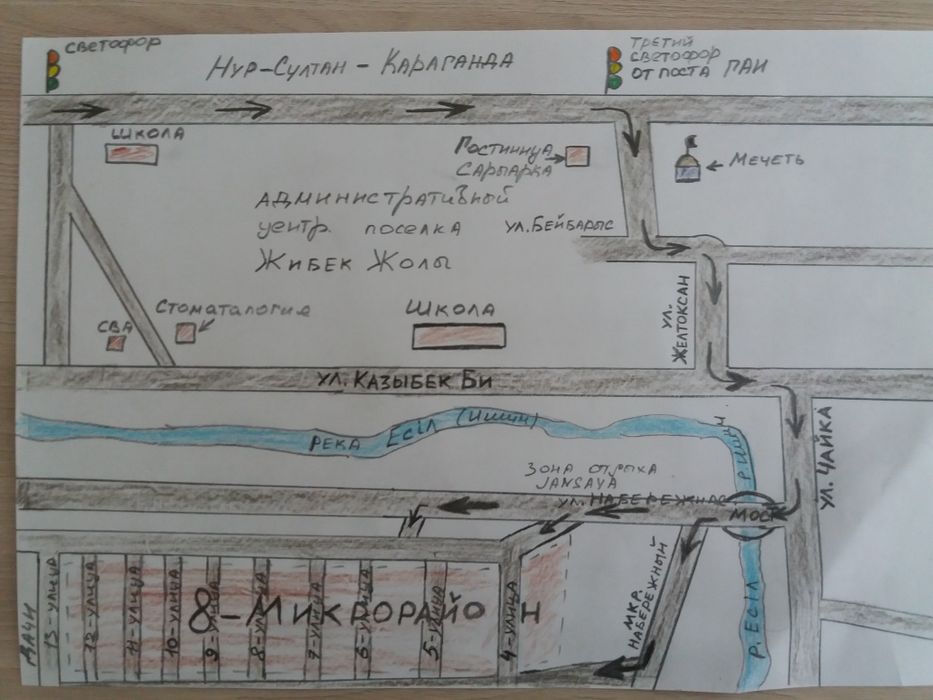 светофор
Нур-Султан - Караганда
третий
светофор
от поста ГАИ
школа
Гостиниуа
Сарыарка
Мечеть
Административный
уентр. поселка
Жибек Жолы
ул.Бейбарыс
ул.
Желтоксан
Стоматалогия
СВА
Школа
ул. Казыбек Би
река Есiл (Ишим)
р. Ишим
ул. Чайка
зона отдыха
JANSAYA
ул. Набережная
Мост
мкр.
Набережный
р. Есiл
8-Микрорайон
Дачи
13-улица
12-улица
11-улица
10-улица
9-улица
8-улица
7-улица
6-улица
5-улица
4-улица